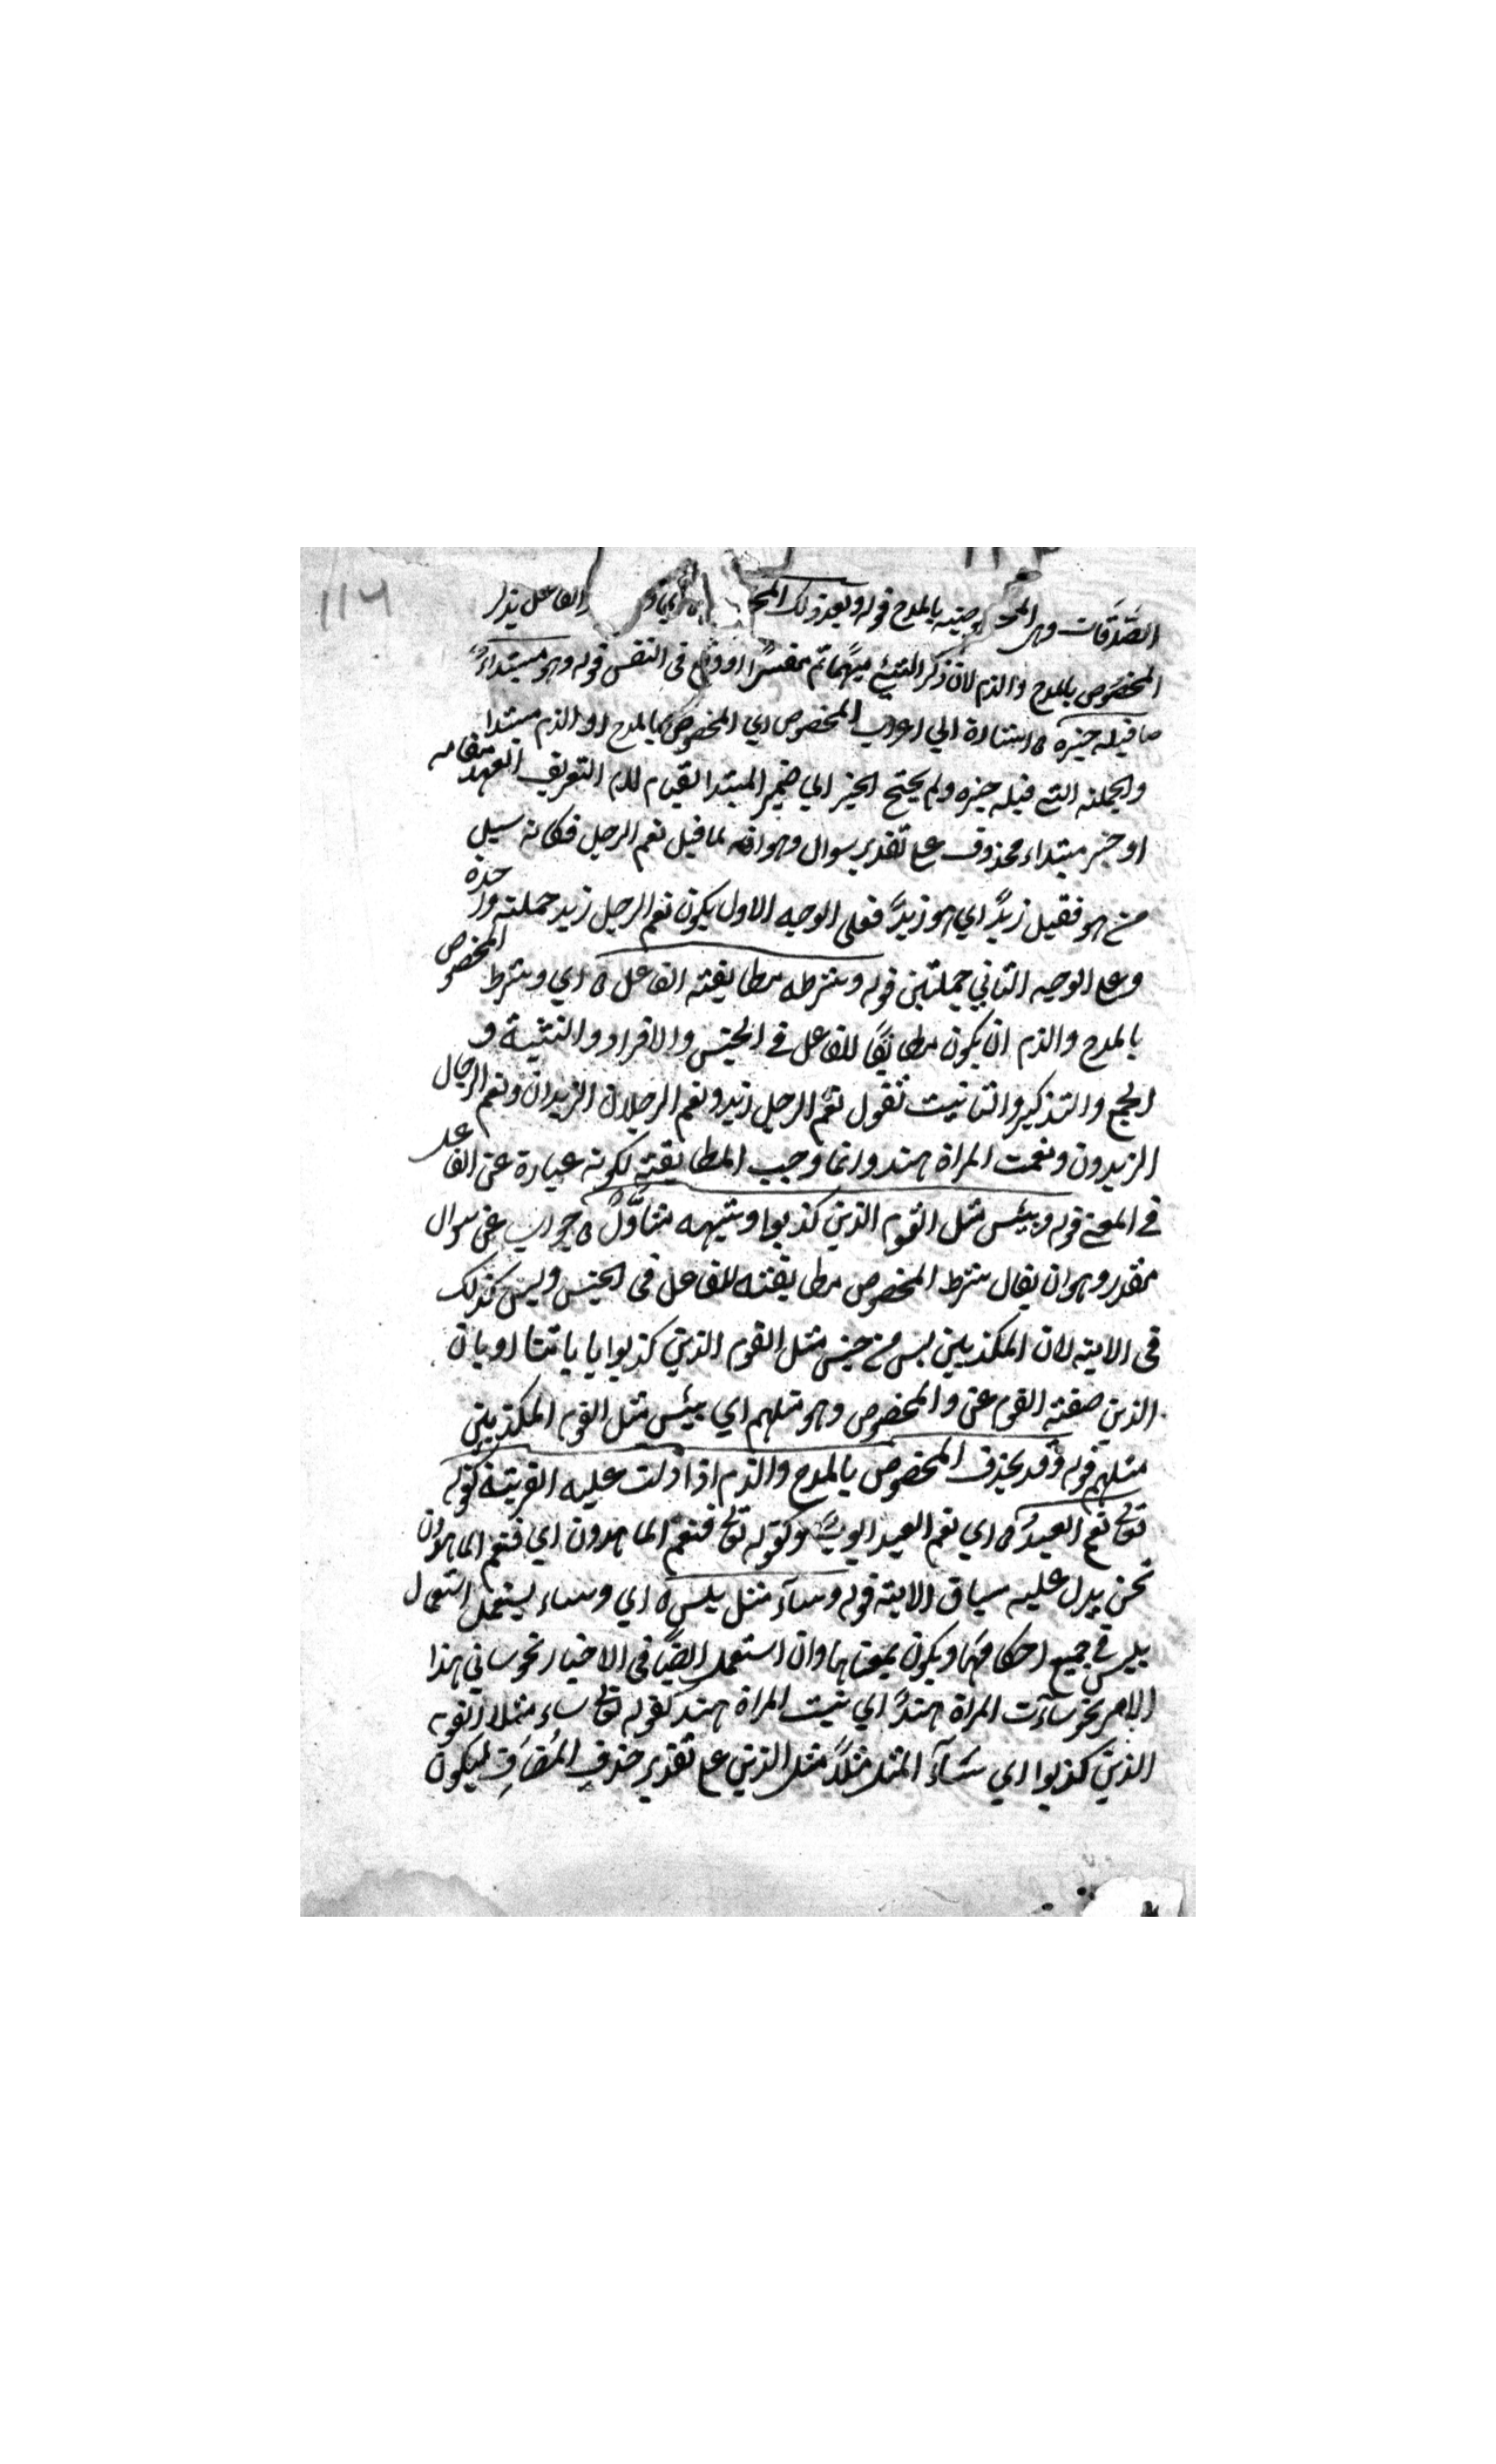 الصَّدَقَات وهى المخصوصة بالمدح قوله وبعد ذلك المخ الفاعل يذكر
المخصُوص بالمدح والذم لان ذكر الشئ مبهماً ثم مفسرًا اوقع فى النفس قوله وهو مبتداءٌ
ما قبله خبره ه اشارة الي اعراب المخصوص اي المخصوص بالمدح او الذم مبتدا
والجملة التي قبله خبره ولم يحتج الخبر الي ضمير المبتدا لقيام لام التعريف العهد مقامه
او خبر مبتداء محذوف على تقدير سوال وهو انه لما قيل نعم الرجل فكانه سيل
من هو فقيل زيدٌ اي هو زيدٌ فعلى الوجه الاول يكون نعم الرجل زيد جملة واحدة
وعلى الوجه الثاني جملتين قوله وشرطه مطابقة الفاعل ه اي وشرط المخصوص
بالمدح والذم ان يكون مطابقًا للفاعل في الجنس والافراد والتثنية و
الجمع والتذكير والتانيث تقول نعم الرجل زيد ونعم الرجلان الزيدان ونعم الرجال
الزيدون ونعمت المراة هند وانما وجب المطابقة لكونه عبارة عن الفاعل
في المعنى قوله وبئس مثل القوم الذين كذبوا وشبهه متأوَّلٌ ه جواب عن سوال
مقدر وهو ان يقال شرط المخصوص مطابقته للفاعل فى الجنس وليس كذلك
فى الاية لان المكذبين ليس من جنس مثل القوم الذين كذبوا باياتنا او بان
الذين صفة القوم عن والمخصوص وهو مثلهم اي بئس مثل القوم المكذبين
مثلهم قوله وقد يحذف المخصوص بالمدح والذم اذا دلت عليه القرينة كقوله
تعالى نعم العبدُ ه اي نعم العبد ايوبُ وكقوله تعالى فنعم الماهدون اي فنعم الماهدون
نحن يدل عليه سياق الاية قوله وسآء مثل بئس ه اي وساء يستعمل استعمال
بئس في جميع احكامها ويكون بمعناها وان استعمل ايضًا فى الاخبار نحو ساني هذا
الامر نحو سآءت المراة هندٌ اي بئست المراة هند كقوله تعالى ساء مثلا القوم
الذين كذبوا اي سَآءَ المثل مثلاً مثل الذين على تقدير حذفِ المُضَافِ ليكون